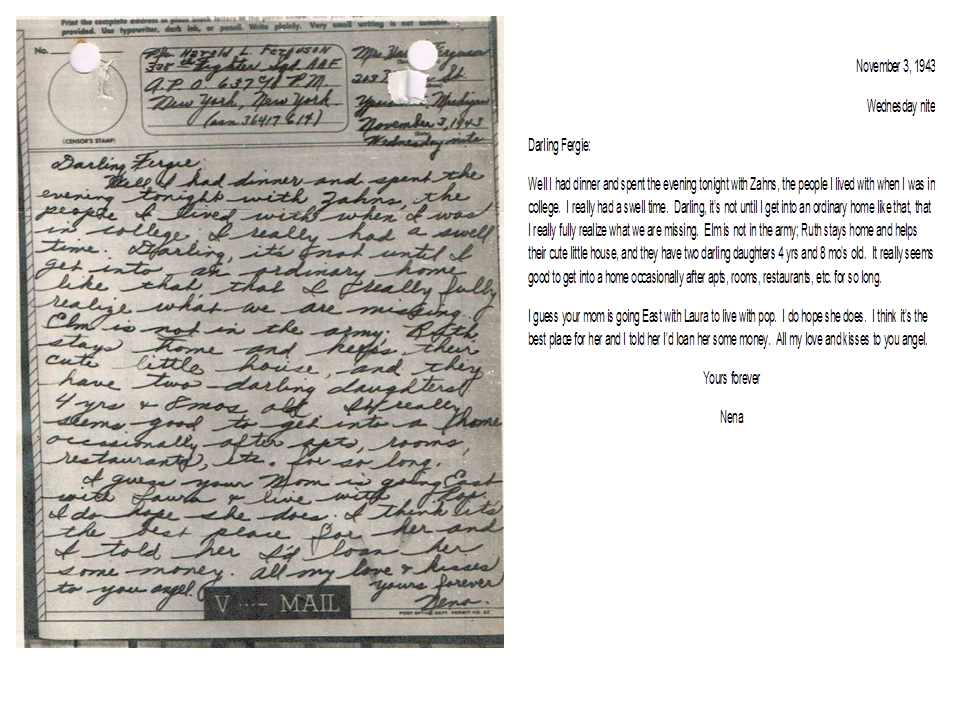 Print the complete address in plain block letters in the panel
provided. Use typewriter, dark ink, or pencil. Write plainly. Very small writing is not suitable.
No.
(CENSOR'S STAMP)
Pfc. Harold L. Ferguson
338th Fighter Sqd. AAF
A.P.O. 637 c/o P.M.
New York, New York
(asn 36417614)
Mrs. Ferguson
203 St
Michigan
November 3, 1943
Wednesday nite
Darling Fergie:
Well I had dinner and spent the
evening tonight with Zahns, the
people I lived with when I was
in college. I really had a swell
time. Darling, it's not until I
get into an ordinary home
like that, that I really fully
realize what we are missing.
Elm is not in the army. Ruth
stays home and helps their
cute little house, and they
have two darling daughters
4 yrs & 8 mos old. It really
seems good to get into a home
occasionally after apts, rooms,
restaurants, etc. for so long.
I guess your Mom is going East
with Laura & live with Pop.
I do hope she does. I think it's
the best place for her and
I told her I'd loan her
some money. All my love & kisses
to you angel. Yours forever
Nena.
V ···– MAIL
POST OFFICE DEPT. PERMIT NO.
November 3, 1943
Wednesday nite
Darling Fergie:
Well I had dinner and spent the evening tonight with Zahns, the people I lived with when I was in
college. I really had a swell time. Darling, it's not until I get into an ordinary home like that, that
I really fully realize what we are missing. Elm is not in the army; Ruth stays home and helps
their cute little house, and they have two darling daughters 4 yrs and 8 mo's old. It really seems
good to get into a home occasionally after apts, rooms, restaurants, etc. for so long.
I guess your mom is going East with Laura to live with pop. I do hope she does. I think it's the
best place for her and I told her I'd loan her some money. All my love and kisses to you angel.
Yours forever
Nena